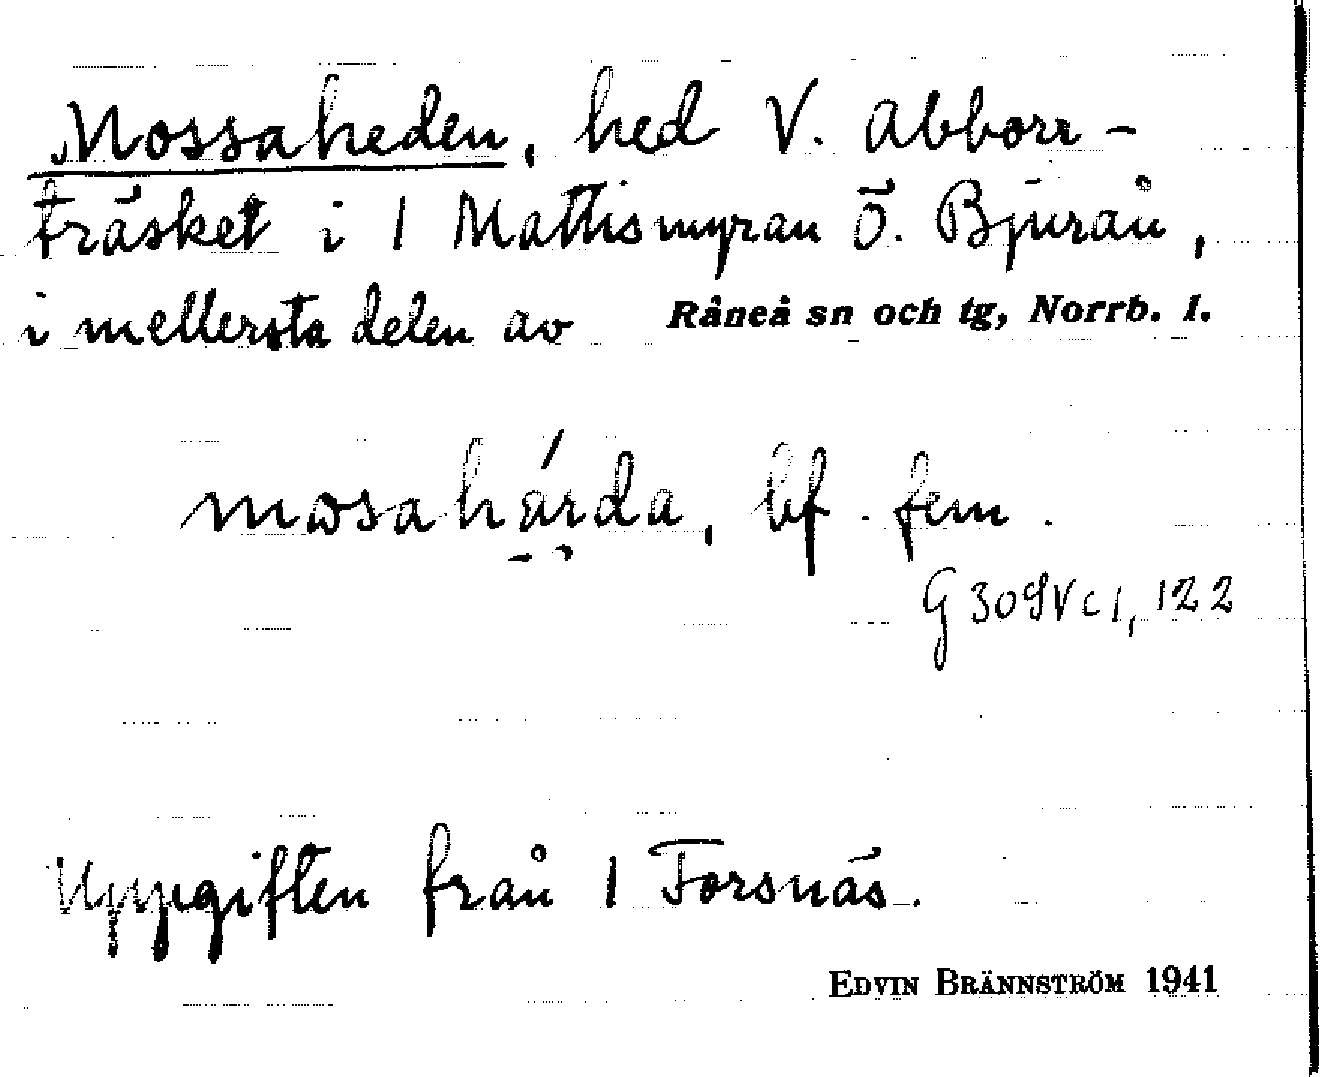 Mossaheden, hed V. Abborr-
träsket i 1 Mattismyran Ö. Bjurån,
i mellersta delen av Råneå sn och tg, Norrb. l.
mosahárda, bf. fem.
G 309 V c 1, 122
Uppgiften från 1 Forsnäs.
EDVIN BRÄNNSTRÖM 1941